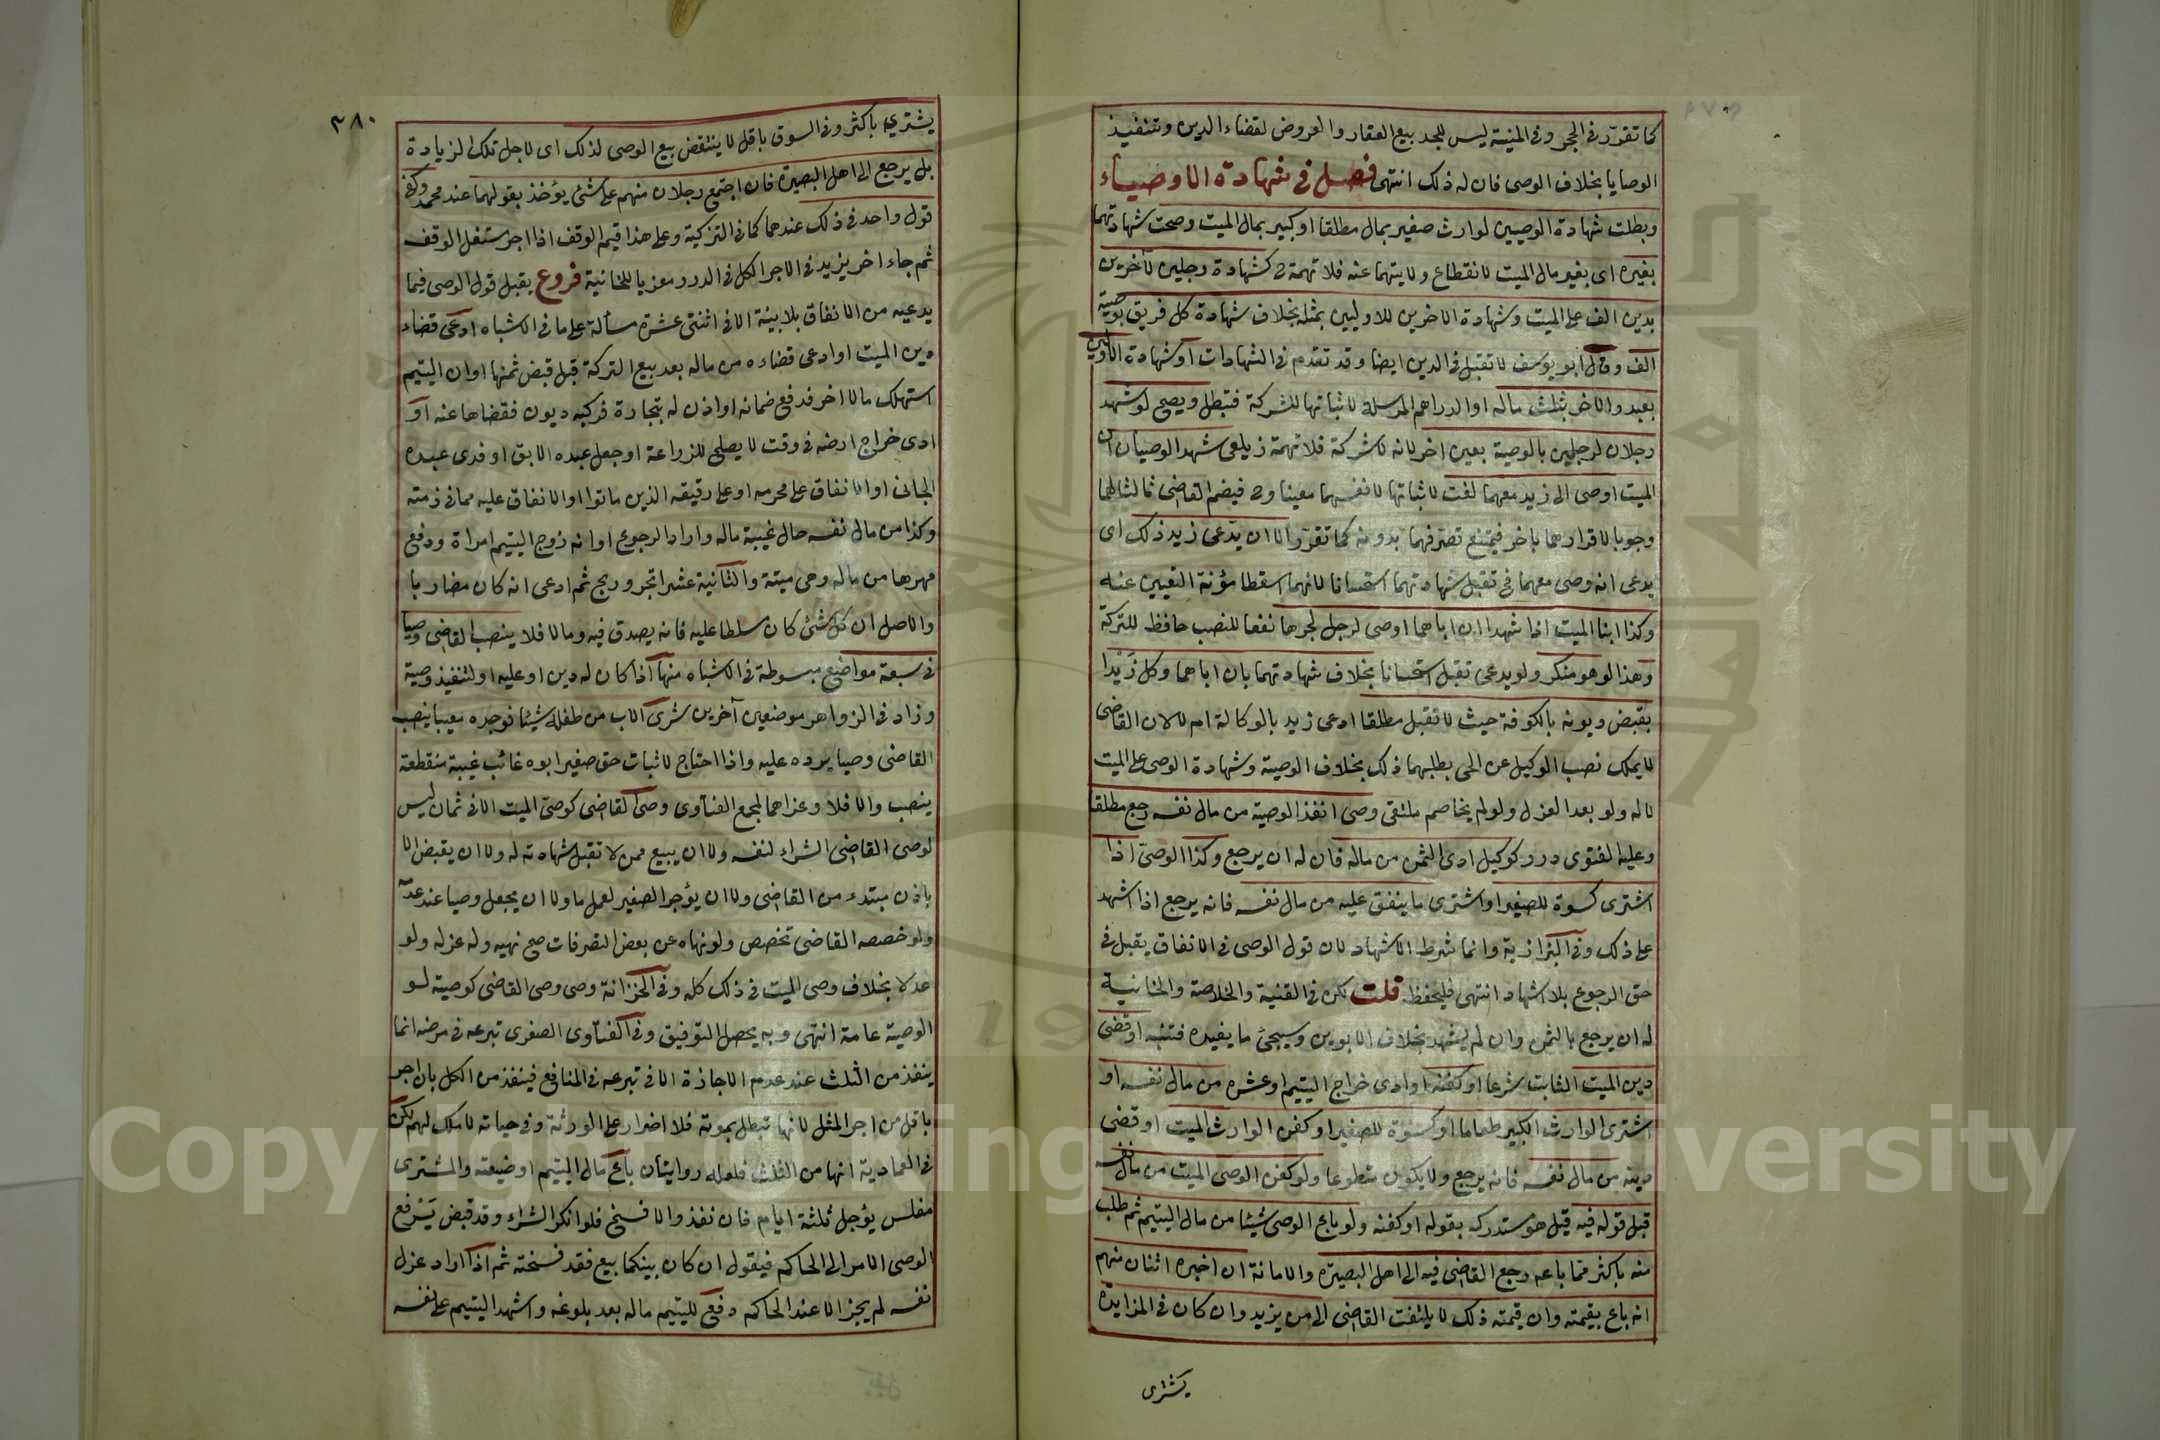 كما تقرر في الحجر وفي المنية ليس للجد بيع العقار والعروض لقضاء الدين وتنفيذ
الوصايا بخلاف الوصي فان له ذلك انتهى فصل في شهادة الاوصياء
وبطلت شهادة الوصيين لوارث صغير بمال مطلقا او كبير بمال الميت وصحت شهادتهما
بغيره اى بغير مال الميت لانقطاع ولايتهما عنه فلا تهمة ح كشهادة رجلين لآخرين
بدين الف على الميت وشهادة الاخرين للاوليين بمثله بخلاف شهادة كل فريق بوصية
الف وقال ابو يوسف لا تقبل في الدين ايضا وقد تقدم في الشهادات او شهادة الاولين
بعبد والاخر بثلث ماله او الدراهم المرسلة لاثباتها للشركة فتبطل ويصح لو شهد
رجلان لرجلين بالوصية بعين اخر لانه لا شركة فلا تهمة زيلعي شهد الوصيان ان
الميت اوصى الى زيد معهما لغت لاثباتها لانفسهما معينا وح فيضم القاضي ثالثا لهما
وجوبا لاقرارهما باخر فيمتنع تصرفهما بدونه كما تقرر الا ان يدعى زيد ذلك اى
يدعى انه وصى معهما فح تقبل شهادتهما استحسانا لانهما اسقطا مؤنة التعيين عنه
وكذا ابنا الميت اذا شهدا ان اباهما اوصى لرجل لجرهما نفعا للنصب حافظ للتركة
وهذا لو هو منكر ولو يدعى تقبل استحسانا بخلاف شهادتهما بان اباهما وكل زيدا
بقبض ديونه بالكوفة حيث لا تقبل مطلقا ادعى زيد بالوكالة ام لا لان القاضى
لا يملك نصب الوكيل عن الحى بطلبهما ذلك بخلاف الوصية وشهادة الوصى على الميت
لا له ولو بعد العزل ولو لم يخاصم ملتقى وصى انفذ الوصية من مال نفسه رجع مطلقا
وعليه الفتوى درر كوكيل ادى الثمن من ماله فان له ان يرجع وكذا الوصى اذا
اشترى كسوة للصغير او اشترى ما ينفق عليه من مال نفسه فانه يرجع اذا اشهد
على ذلك وفي البزازية وانما شرط الاشهاد لان قول الوصى في الانفاق يقبل في
حق الرجوع بلا اشهاد انتهى فليحفظ قلت لكن في القنية والخلاصة والخانية
له ان يرجع بالثمن وان لم يشهد بخلاف الابوين وسيجئ ما يفيده فتنبه او قضى
دين الميت الثابت شرعا او كفنه او ادى خراج اليتيم او عشره من مال نفسه او
اشترى الوارث الكبير طعاما او كسوة للصغير او كفن الوارث الميت او قضى
دينه من مال نفسه فانه يرجع ولا يكون متطوعا ولو كفن الوصى الميت من مال نفسه
قبل قوله فيه قيل هو مستدرك بقوله او كفنه ولو باع الوصى شيئا من مال اليتيم ثم طلب
منه باكثر مما باعه رجع القاضى فيه الى اهل البصيرة والامانة ان اخبره اثنان منهم
انه باع بقيمته وان قيمته ذلك لا يلتفت القاضى الى من يزيد وان كان في المزايدة
يشترى
٣٨٠
يشترى باكثر وفي السوق باقل لا ينتقض بيع الوصى لذلك اى لاجل تلك الزيادة
بل يرجع الى اهل البصيرة فان اجتمع رجلان منهم على شئ يؤخذ بقولهما عند محمد وكفى
قول واحد في ذلك عندهما كما في التزكية وعلى هذا قيم الوقف اذا اجر مستغل الوقف
ثم جاء اخر يزيد في الاجر الكل في الدرر معزيا للخانية فروع يقبل قول الوصى فيما
يدعيه من الانفاق بلا بينة الا في اثنتى عشرة مسألة على ما في الاشباه ادعى قضاء
دين الميت او ادعى قضاءه من ماله بعد بيع التركة قبل قبض ثمنها او ان اليتيم
استهلك مالا اخر فدفع ضمانه او اذن له بتجارة فركبه ديون فقضاها عنه او
ادى خراج ارضه في وقت لا يصلح للزراعة او جعل عبده الابق او فدى عبده
الجانى او الانفاق على محرمه او على رقيقه الذين ماتوا او الانفاق عليه مما في ذمته
وكذا من مال نفسه حال غيبة ماله واراد الرجوع او انه زوج اليتيم امراة ودفع
مهرها من ماله وهى ميتة والثانية عشر اتجر وربح ثم ادعى انه كان مضاربا
والاصل ان كل شئ كان سلطا عليه فانه يصدق فيه وما لا فلا ينصب القاضى وصيا
في سبعة مواضع مبسوطة في الاشباه منها اذا كان له دين او عليه او لتنفيذ وصية
وزاد في الزواهر موضعين آخرين شرى الاب من طفله شيئا فوجده معيبا ينصب
القاضى وصيا يرده عليه واذا احتاج لاثبات حق صغير ابوه غائب غيبة منقطعة
ينصب والا فلا وعزاهما لمجمع الفتاوى وصى القاضى كوصى الميت الا في ثمان ليس
لوصى القاضى الشراء لنفسه ولا ان يبيع ممن لا تقبل شهادته له ولا ان يقبض الا
باذن مبتدء من القاضى ولا ان يؤجر الصغير لعمل ما ولا ان يجعل وصيا عند عدمه
ولو خصصه القاضى تخصص ولو نهاه عن بعض التصرفات صح نهيه وله عزله ولو
عدلا بخلاف وصى الميت في ذلك كله وفي الخزانة وصى وصى القاضى كوصيه لو
الوصية عامة انتهى وبه يحصل التوفيق وفي الفتاوى الصغرى تبرعه في مرضه انما
ينفذ من الثلث عند عدم الاجازة الا في تبرعه في المنافع فينفذ من الكل بان اجر
باقل من اجر المثل لانها تبطل بموته فلا اضرار على الورثة وفي حياته لا ملك لهم لكن
في العمادية انها من الثلث فلعله روايتان باع مال اليتيم او ضيعته والمشترى
مفلس يؤجل ثلثة ايام فان نفذ والا فسخ فلو انكر الشراء وقد قبض يرفع
الوصى الامر الى الحاكم فيقول ان كان بينكما بيع فقد فسخته ثم اذا اراد عزل
نفسه لم يجز الا عند الحاكم دفع لليتيم ماله بعد بلوغه واشهد اليتيم على نفسه
Copyright © King Saud University